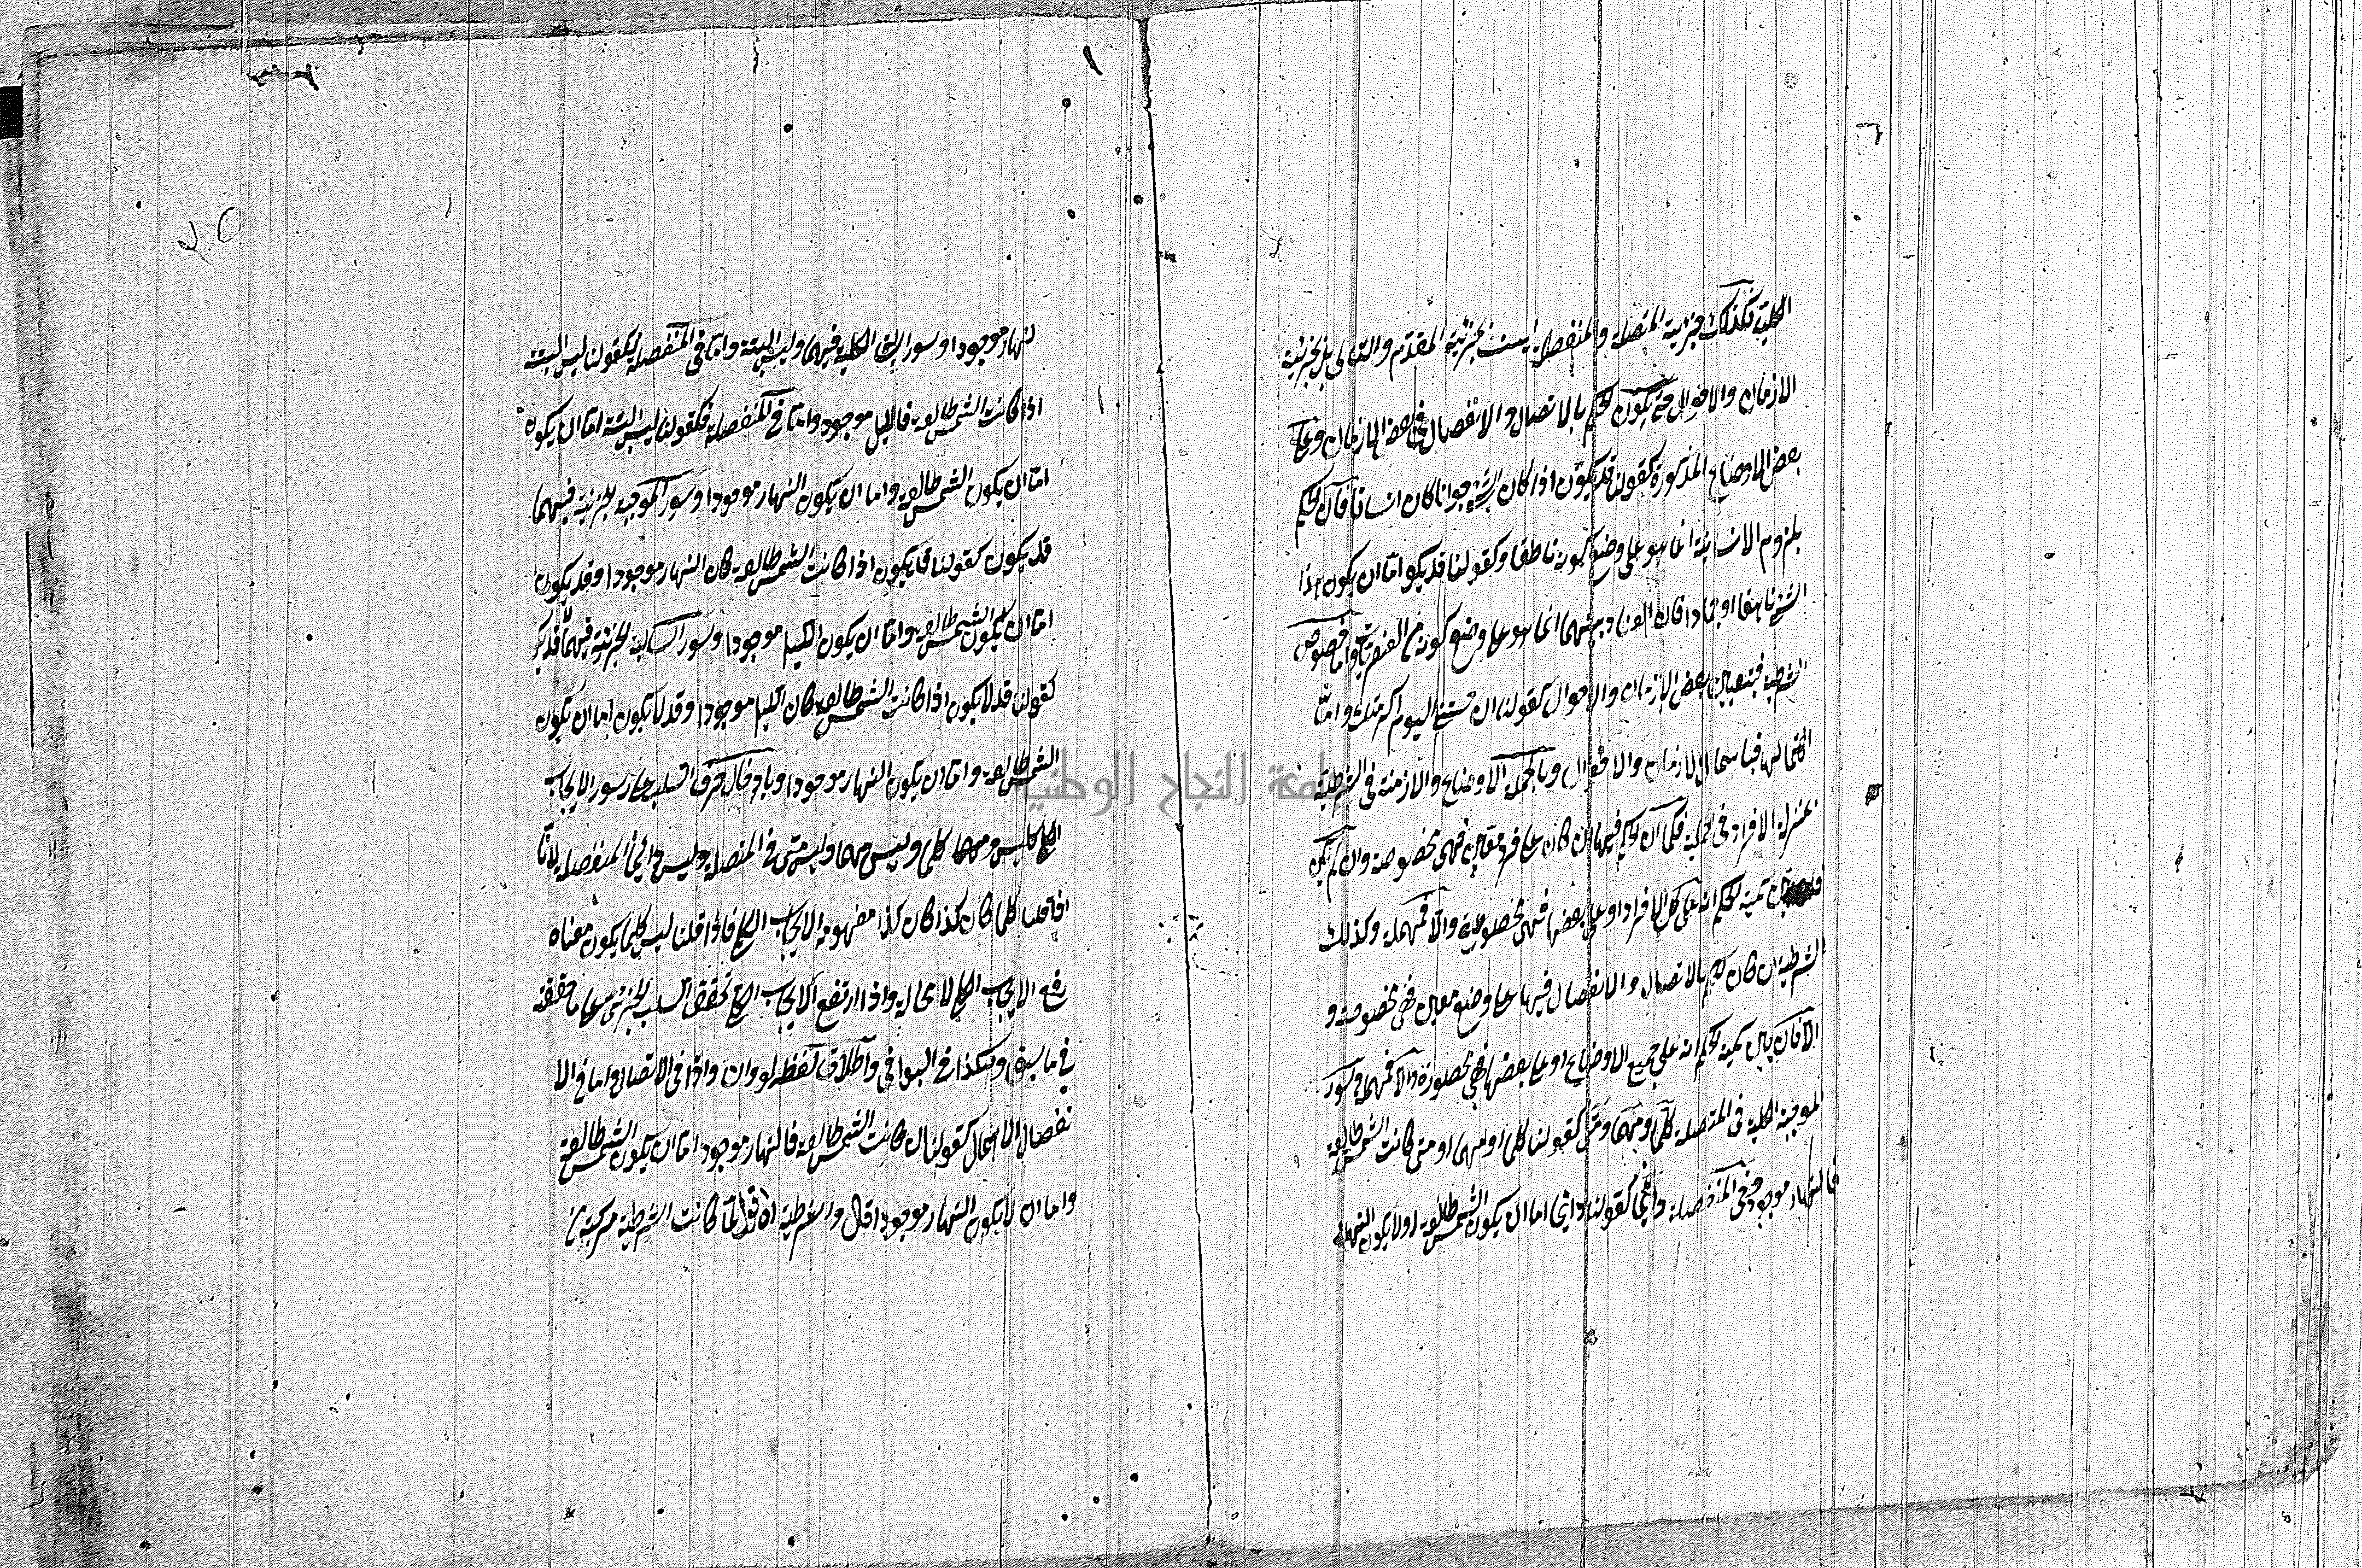 الكلية فكذلك جزئية المتصلة والمنفصلة ليست بجزئية المقدم والتالى بل بجزئية
الازمان والاحوال حتى يكون الحكم بالاتصال والانفصال فى بعض الازمان وعلى
بعض الاوضاع المذكورة كقولنا قد يكون اذا كان الشئ حيوانا كان انسانا فان الحكم
بلزوم الانسانية انما هو على وضع كونه ناطقا وكقولنا قد يكون اما ان يكون هذا
الشئ ناميا او جمادا فان العناد بينهما انما هو على وضع كونه من العنصريات واما خصوص
الشرطية فبتعيين بعض الازمان والاحوال كقولنا ان جئتنى اليوم اكرمتك واما
اهمالها فباهمال الازمان والاحوال وبالجملة الاوضاع والازمنة فى الشرطية
بمنزلة الافراد فى الحملية فكما ان الحكم فيها ان كان على فرد معين فهى مخصوصة وان لم يكن
فان بين كمية الحكم انه على كل الافراد او على بعضها فهى محصورة والا فمهملة وكذلك
الشرطية ان كان الحكم بالاتصال والانفصال فيها على وضع معين فهى مخصوصة و
الا فان بين كمية الحكم انه على جميع الاوضاع او على بعضها فهى محصورة والا فمهملة وسور
الموجبة الكلية فى المتصلة كلما ومهما ومتى كقولنا كلما او مهما او متى كانت الشمس طالعة
فالنهار موجود وفى المنفصلة دائما كقولنا دائما اما ان يكون الشمس طالعة او لا يكون النهار
لنهار موجودا وسور السالبة الكلية فيهما وليس البتة واما فى المنفصلة فكقولنا ليس البتة
اذا كانت الشمس طالعة فالليل موجود واما فى المنفصلة فكقولنا ليس البتة اما ان يكون
اما ان يكون الشمس طالعة واما ان يكون النهار موجودا وسور الموجبة الجزئية فيهما
قد يكون كقولنا قد يكون اذا كانت الشمس طالعة كان النهار موجودا وقد يكون
اما ان يكون الشمس طالعة واما ان يكون الليل موجودا وسور السالبة الجزئية فيهما قد لا يكون
كقولنا قد لا يكون اذا كانت الشمس طالعة كان الليل موجودا وقد لا يكون اما ان يكون
الشمس طالعة واما ان يكون النهار موجودا وبادخال حرف السلب على سور الايجاب
الكلى كليس كلما وليس مهما وليس متى فى المتصلة وليس دائما فى المنفصلة لانا
اذا قلنا كلما كان كذا كان كذا مفهومه الايجاب الكلى فاذا قلنا ليس كلما يكون معناه
رفع الايجاب الكلى لا محالة واذا ارتفع الايجاب الكلى تحقق السلب الجزئى على ما حققته
فى ما سبق وهكذا فى البواقى واطلاق لفظه لو وان واذا فى الاتصال واما فى الا
نفصال للاهمال كقولنا ان كانت الشمس طالعة فالنهار موجود اما ان يكون الشمس طالعة
واما ان لا يكون النهار موجودا قال والشرطية اقول لما كانت الشرطية مركبة من
جامعة النجاح الوطنية